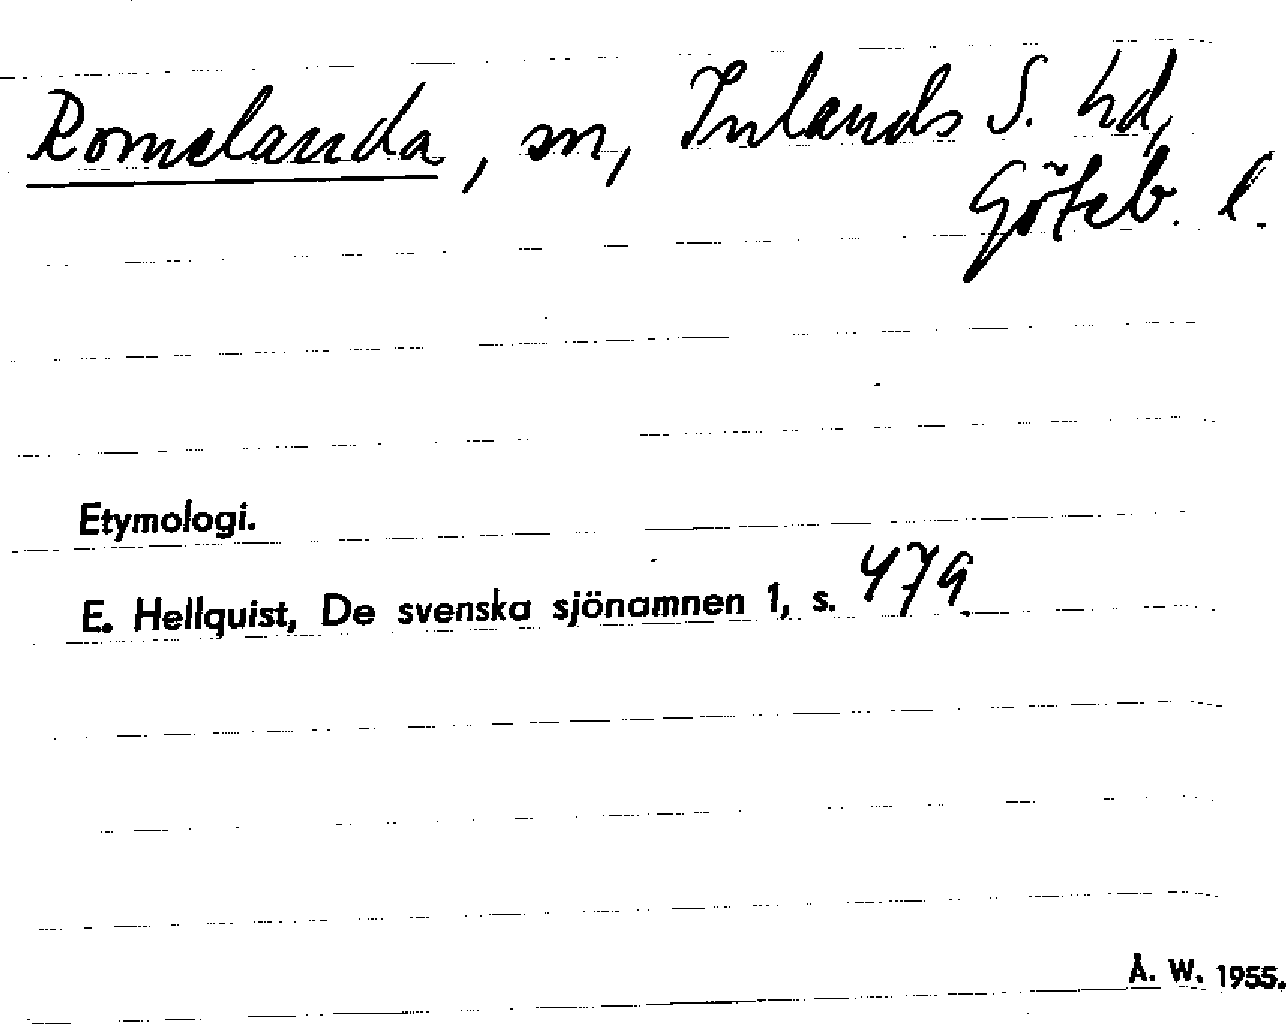 Romelanda, sn, Inlands S. hd,
Göteb. l.
Etymologi.
E. Hellquist, De svenska sjönamnen 1, s. 479
Å. W. 1955.